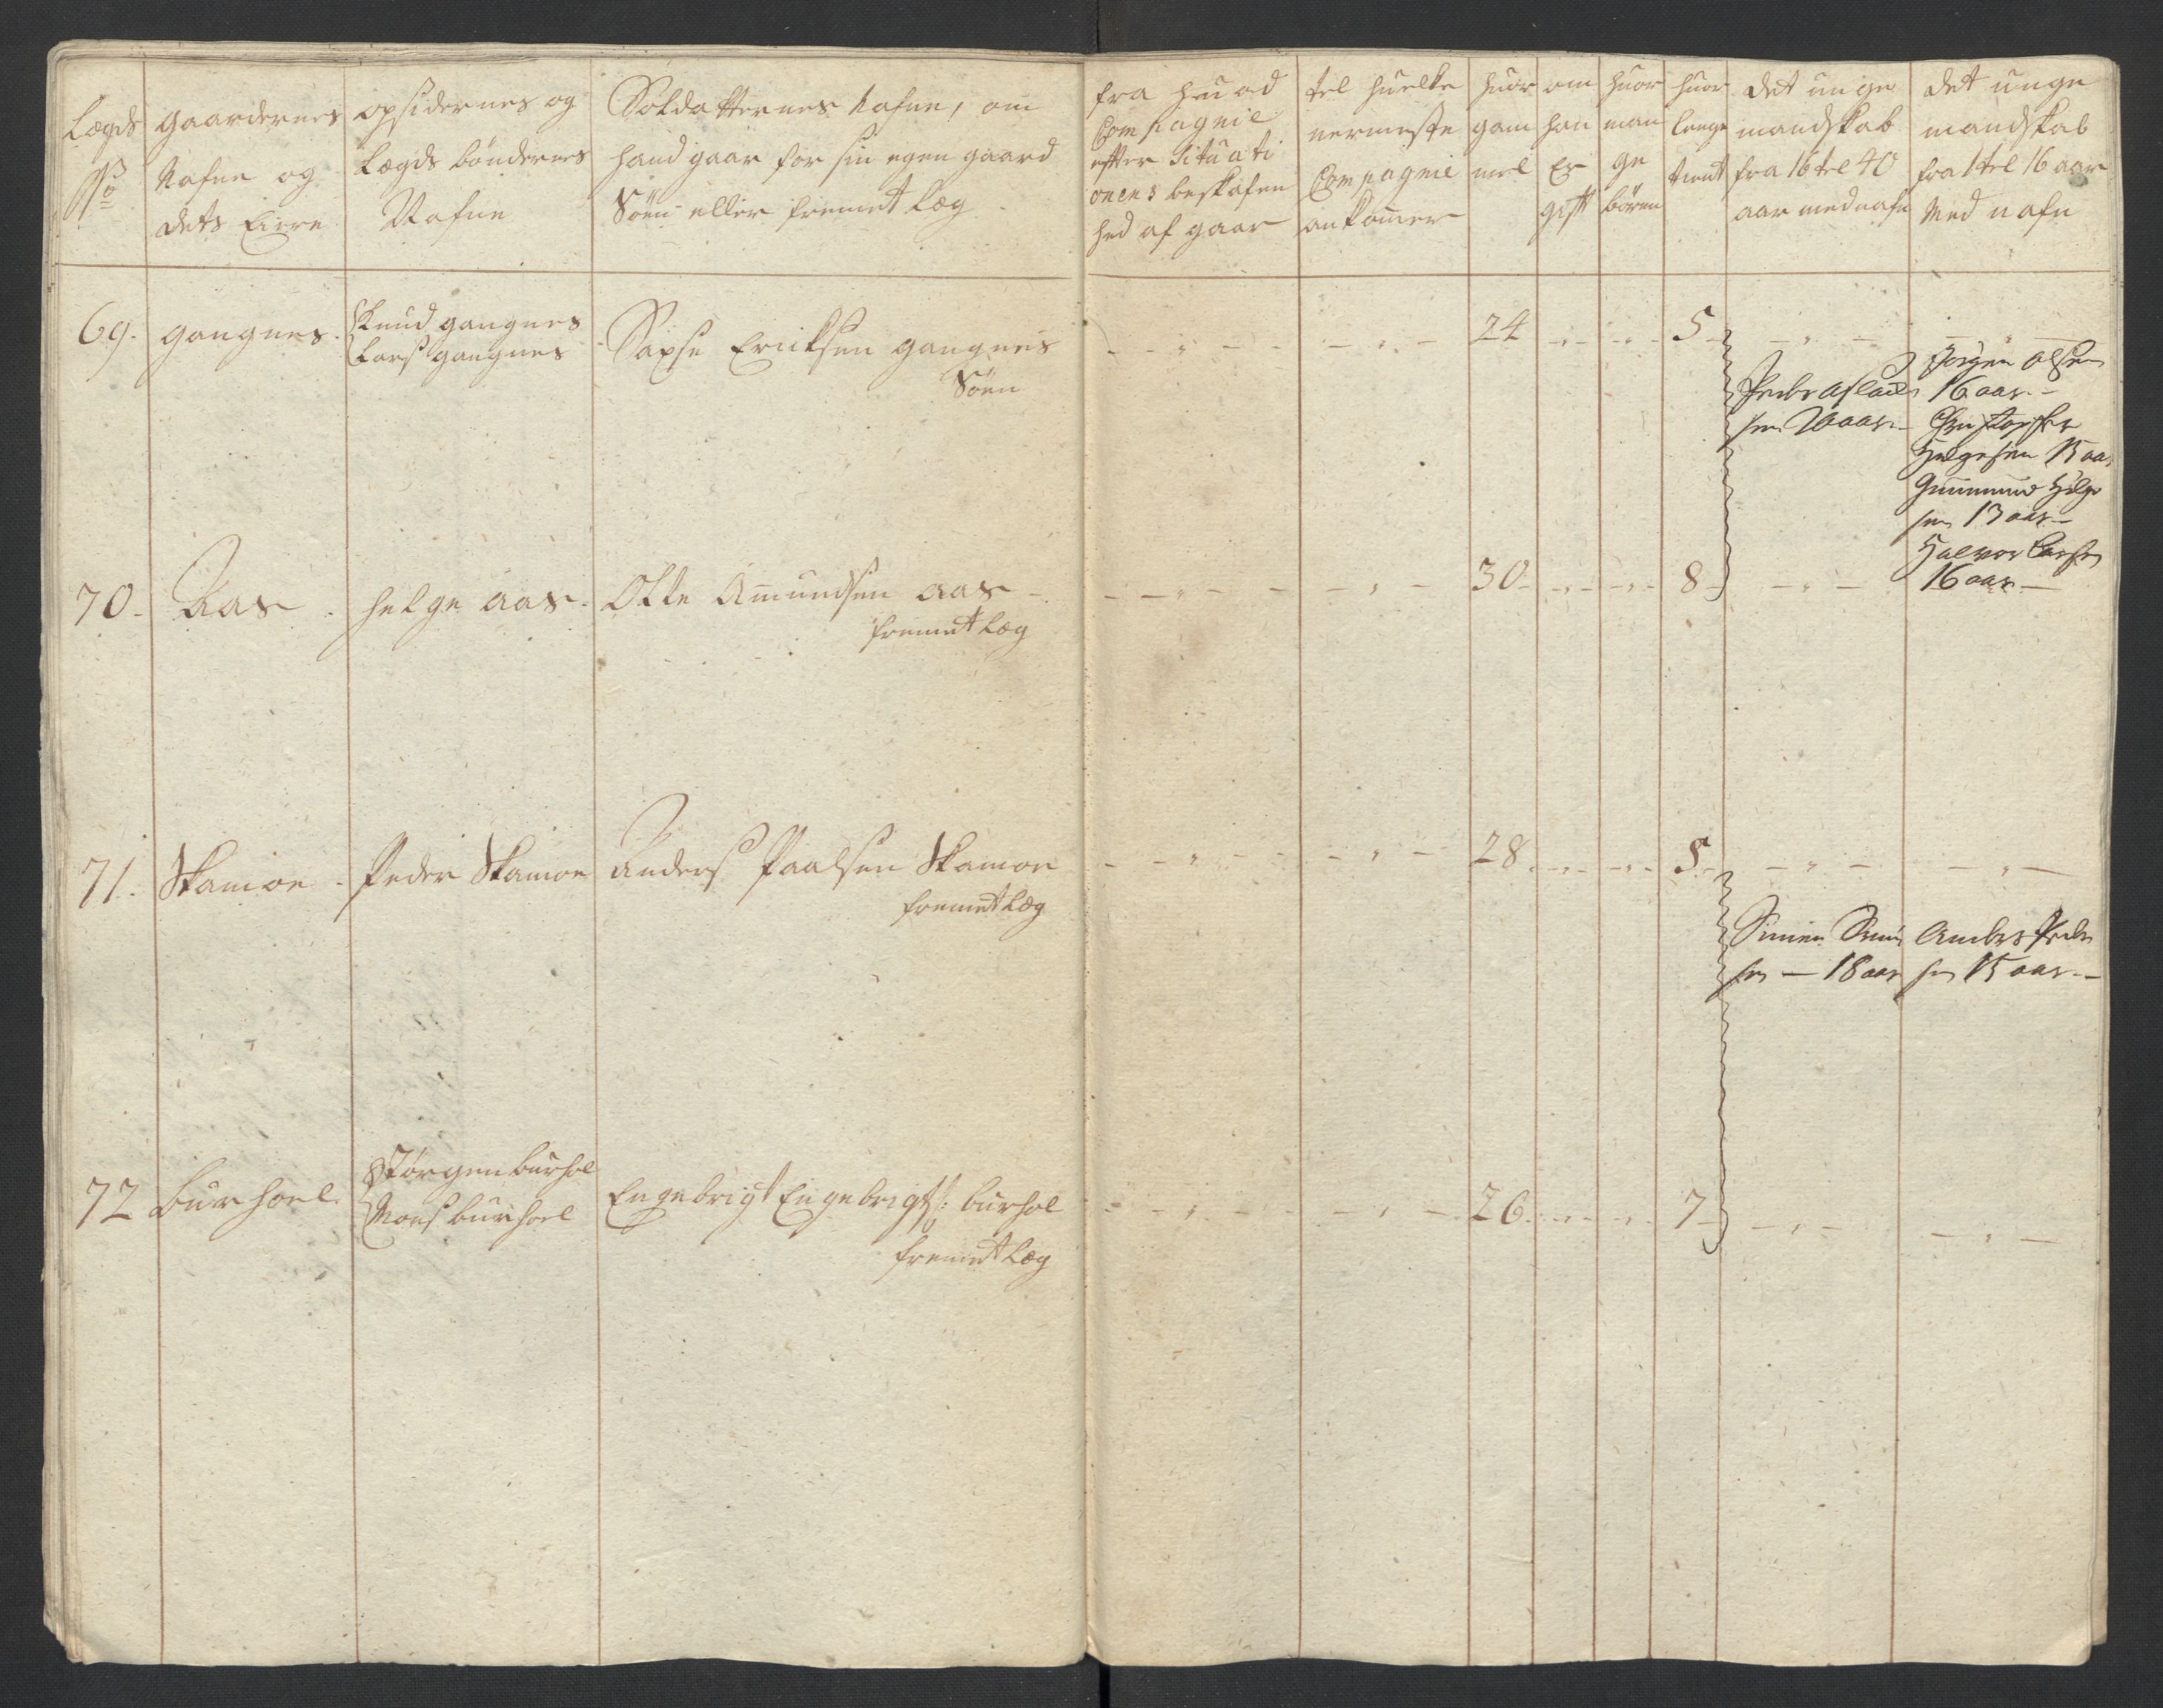 Lægds
No
gaardernes
Nafne og
dets Eiere
opsidernes og
Lægds bönderes
Nafne
Soldatternes Nafne, om
hand gaar for sin egen gaard
Söen eller fremet læg
fra huad
Compagnie
efter Situati
onens beskafen
hed af gaar
tel huelke
nermeste
Compagnie
ankommer
huor
gam
mel
om
han
Er
gift
huor
man
ge
bören
huor
lenge
tient
det unge
mandskab
fra 16 tel 40
aar med nafn
det unge
mandskab
fra 1 tel 16 aar
Med nafn
69. gangnes. Knud gangnes
Lars gangnes
Sapse Ericksen gangnes
Söen
24 5
Peder
sen aar
Jörgen olsen
16 aar
Christopher
Helgesen 15 aar
Gummund Helge
sen 13 aar
Halvor Larsen
16 aar
70. Aas. helge aas. Olle Amundsen aas
fremet læg
30 8
71. Skamoe. Peder Skamoe Anders Paalsen Skamoe
fremet læg
28 5
Simen
sen 18 aar
Anders Peder
sen 15 aar
72 burhoel. Jörgen burhol
Mons burhoel
Engebrigt Engebrigts: burhol
fremet læg
26 7